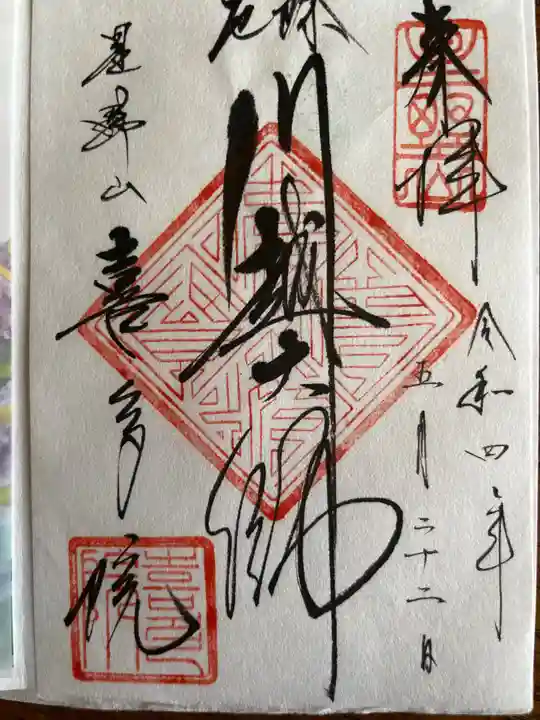 奉拝
令和四年
五月二十二日
厄除
川越大師
星野山
喜多院